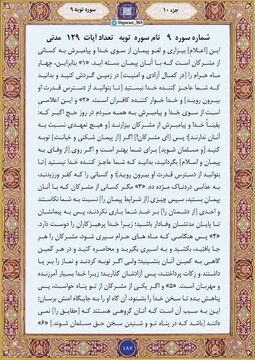 @quran_365
جزء ۱۰
سوره توبه ۹
شماره سوره ۹ نام سوره توبه تعداد آیات ۱۲۹ مدنی
[این] اعلام بیزاری و لغو پیمان از سوی خدا و پیامبرش به کسانی
از مشرکان است که با آنان پیمان بسته اید. «۱» بنابراین، چهار
ماه حرام را [در کمال آزادی و امنیت] در زمین گردش کنید و بدانید
که شما عاجز کننده خدا نیستید [تا بتوانید از دسترس قدرت او
بیرون روید] و خدا خوار کننده کافران است. «۲» و این اعلامی
است از سوی خدا و پیامبرش به همه مردم در روز حج اکبر که:
یقیناً خدا و پیامبرش از مشرکان بیزارند [و هیچ تعهدی نسبت به
آنان ندارند]؛ پس [ای مشرکان!] اگر [از پیمان شکنی و خیانت] توبه
کنید [و مسلمان شوید] برای شما بهتر است و اگر روی [از وفای به
پیمان و اسلام] بگردانید، بدانید که شما عاجز کننده خدا نیستید [تا
بتوانید از دسترس قدرت او بیرون روید] و کسانی را که کفر ورزیدند،
به عذابی دردناک مژده ده. «۳» مگر کسانی از مشرکان که با آنان
پیمان بستید، سپس چیزی [از شرایط پیمان را] نسبت به شما نکاستند
و احدی [از دشمنان] را بر ضد شما یاری نکردند، پس به پیمانشان
تا پایان مدتشان وفادار باشید؛ زیرا خدا پرهیزکاران را دوست دارد.
«۴» پس هنگامی که ماه های حرام سپری شود، مشرکان را هر
جا یافتید، بکشید و به اسیری بگیرید و محاصره کنید و در هر کمین
گاهی به کمین آنان بنشینید؛ ولی اگر توبه کردند و نماز را بر پا
داشتند و زکات پرداختند، پس آزادشان گذارید؛ زیرا خدا بسیار آمرزنده
و مهربان است. «۵» و اگر یکی از مشرکان از تو پناه خواست، پس
پناهش بده تا سخن خدا را بشنود، آن گاه او را به جایگاه امنش برسان؛
این به سبب آن است که آنان گروهی هستند که [حقایق را] نمی
دانند [باشد که در پناه تو و شنیدن سخن حق مسلمان شوند.] «۶»
۱۸۷